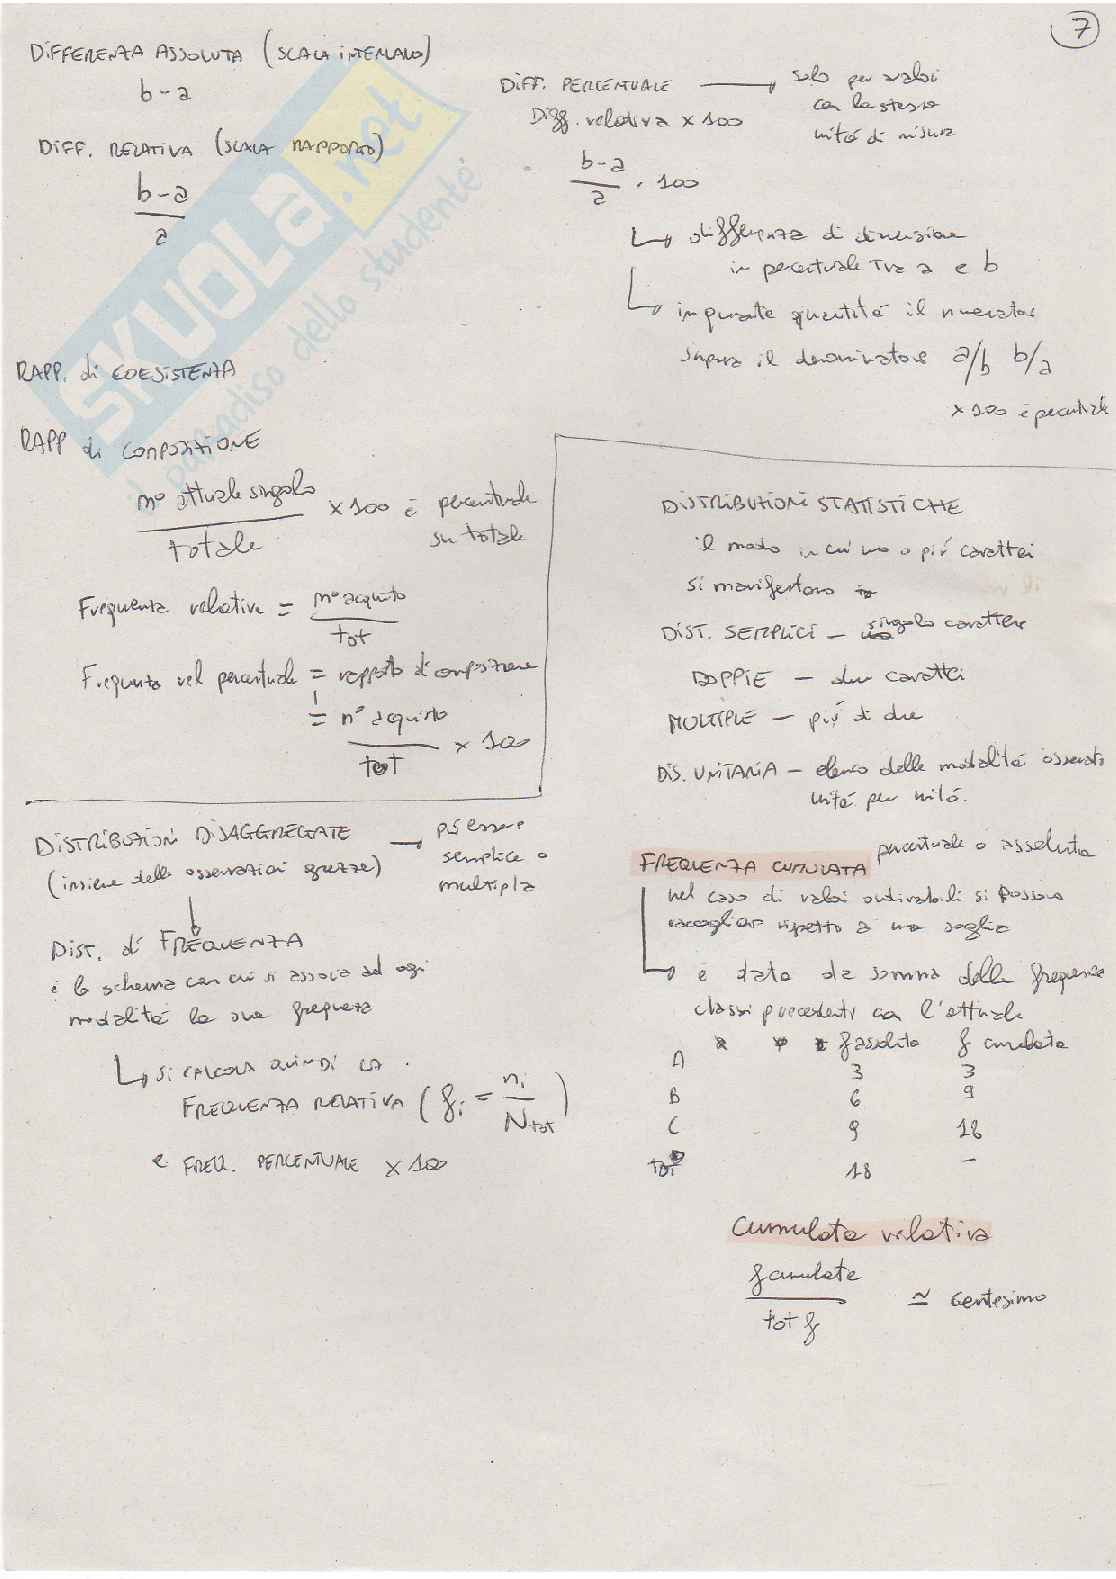 7
DIFFERENZA ASSOLUTA (SCALA INTERVALLO)
b-a
DIFF. RELATIVA (SCALA RAPPORTO)
b-a
a
DIFF. PERCENTUALE → solo per valori
con la stessa
unità di misura
Diff. relativa x 100
b-a
a
. 100
↳ differenza di dimensione
in percentuale tra a e b
↳ in quante quantità il numerator
supera il denominatore a/b b/a
x 100 è percentuale
RAPP. di COESISTENZA
RAPP di COMPOSIZIONE
n° attuale singolo
totale
x 100 è percentuale
su totale
Frequenza relativa = n° acquisto
tot
Frequenza rel percentuale = rapporto di composizione
= n° acquisto
tot
x 100
DISTRIBUZIONI STATISTICHE
il modo in cui uno o più caratteri
si manifestano
DIST. SEMPLICI - singolo carattere
DOPPIE - due caratteri
MULTIPLE - più di due
DIS. UNITARIA - elenco delle modalità osservate
unità per unità.
DISTRIBUZIONI DISAGGREGATE → può essere
semplice o
multipla
(insieme delle osservazioni grezze)
DIST. di FREQUENZA
è lo schema con cui si associa ad ogni
modalità la sua frequenza
↳ SI CALCOLA QUINDI LA
FREQUENZA RELATIVA (fi = ni
Ntot)
e FREQ. PERCENTUALE x 100
FREQUENZA CUMULATA percentuale o assoluta
nel caso di valori ordinabili si possono
raccogliere rispetto a una soglia
↳ è data da somma delle frequenze
classi precedenti con l'attuale
f assoluta f cumulata
A 3 3
B 6 9
C 9 18
tot 18 -
Cumulata relativa
f cumulata
tot f
≃ centesimo
SKUOLA.net
il paradiso dello studente